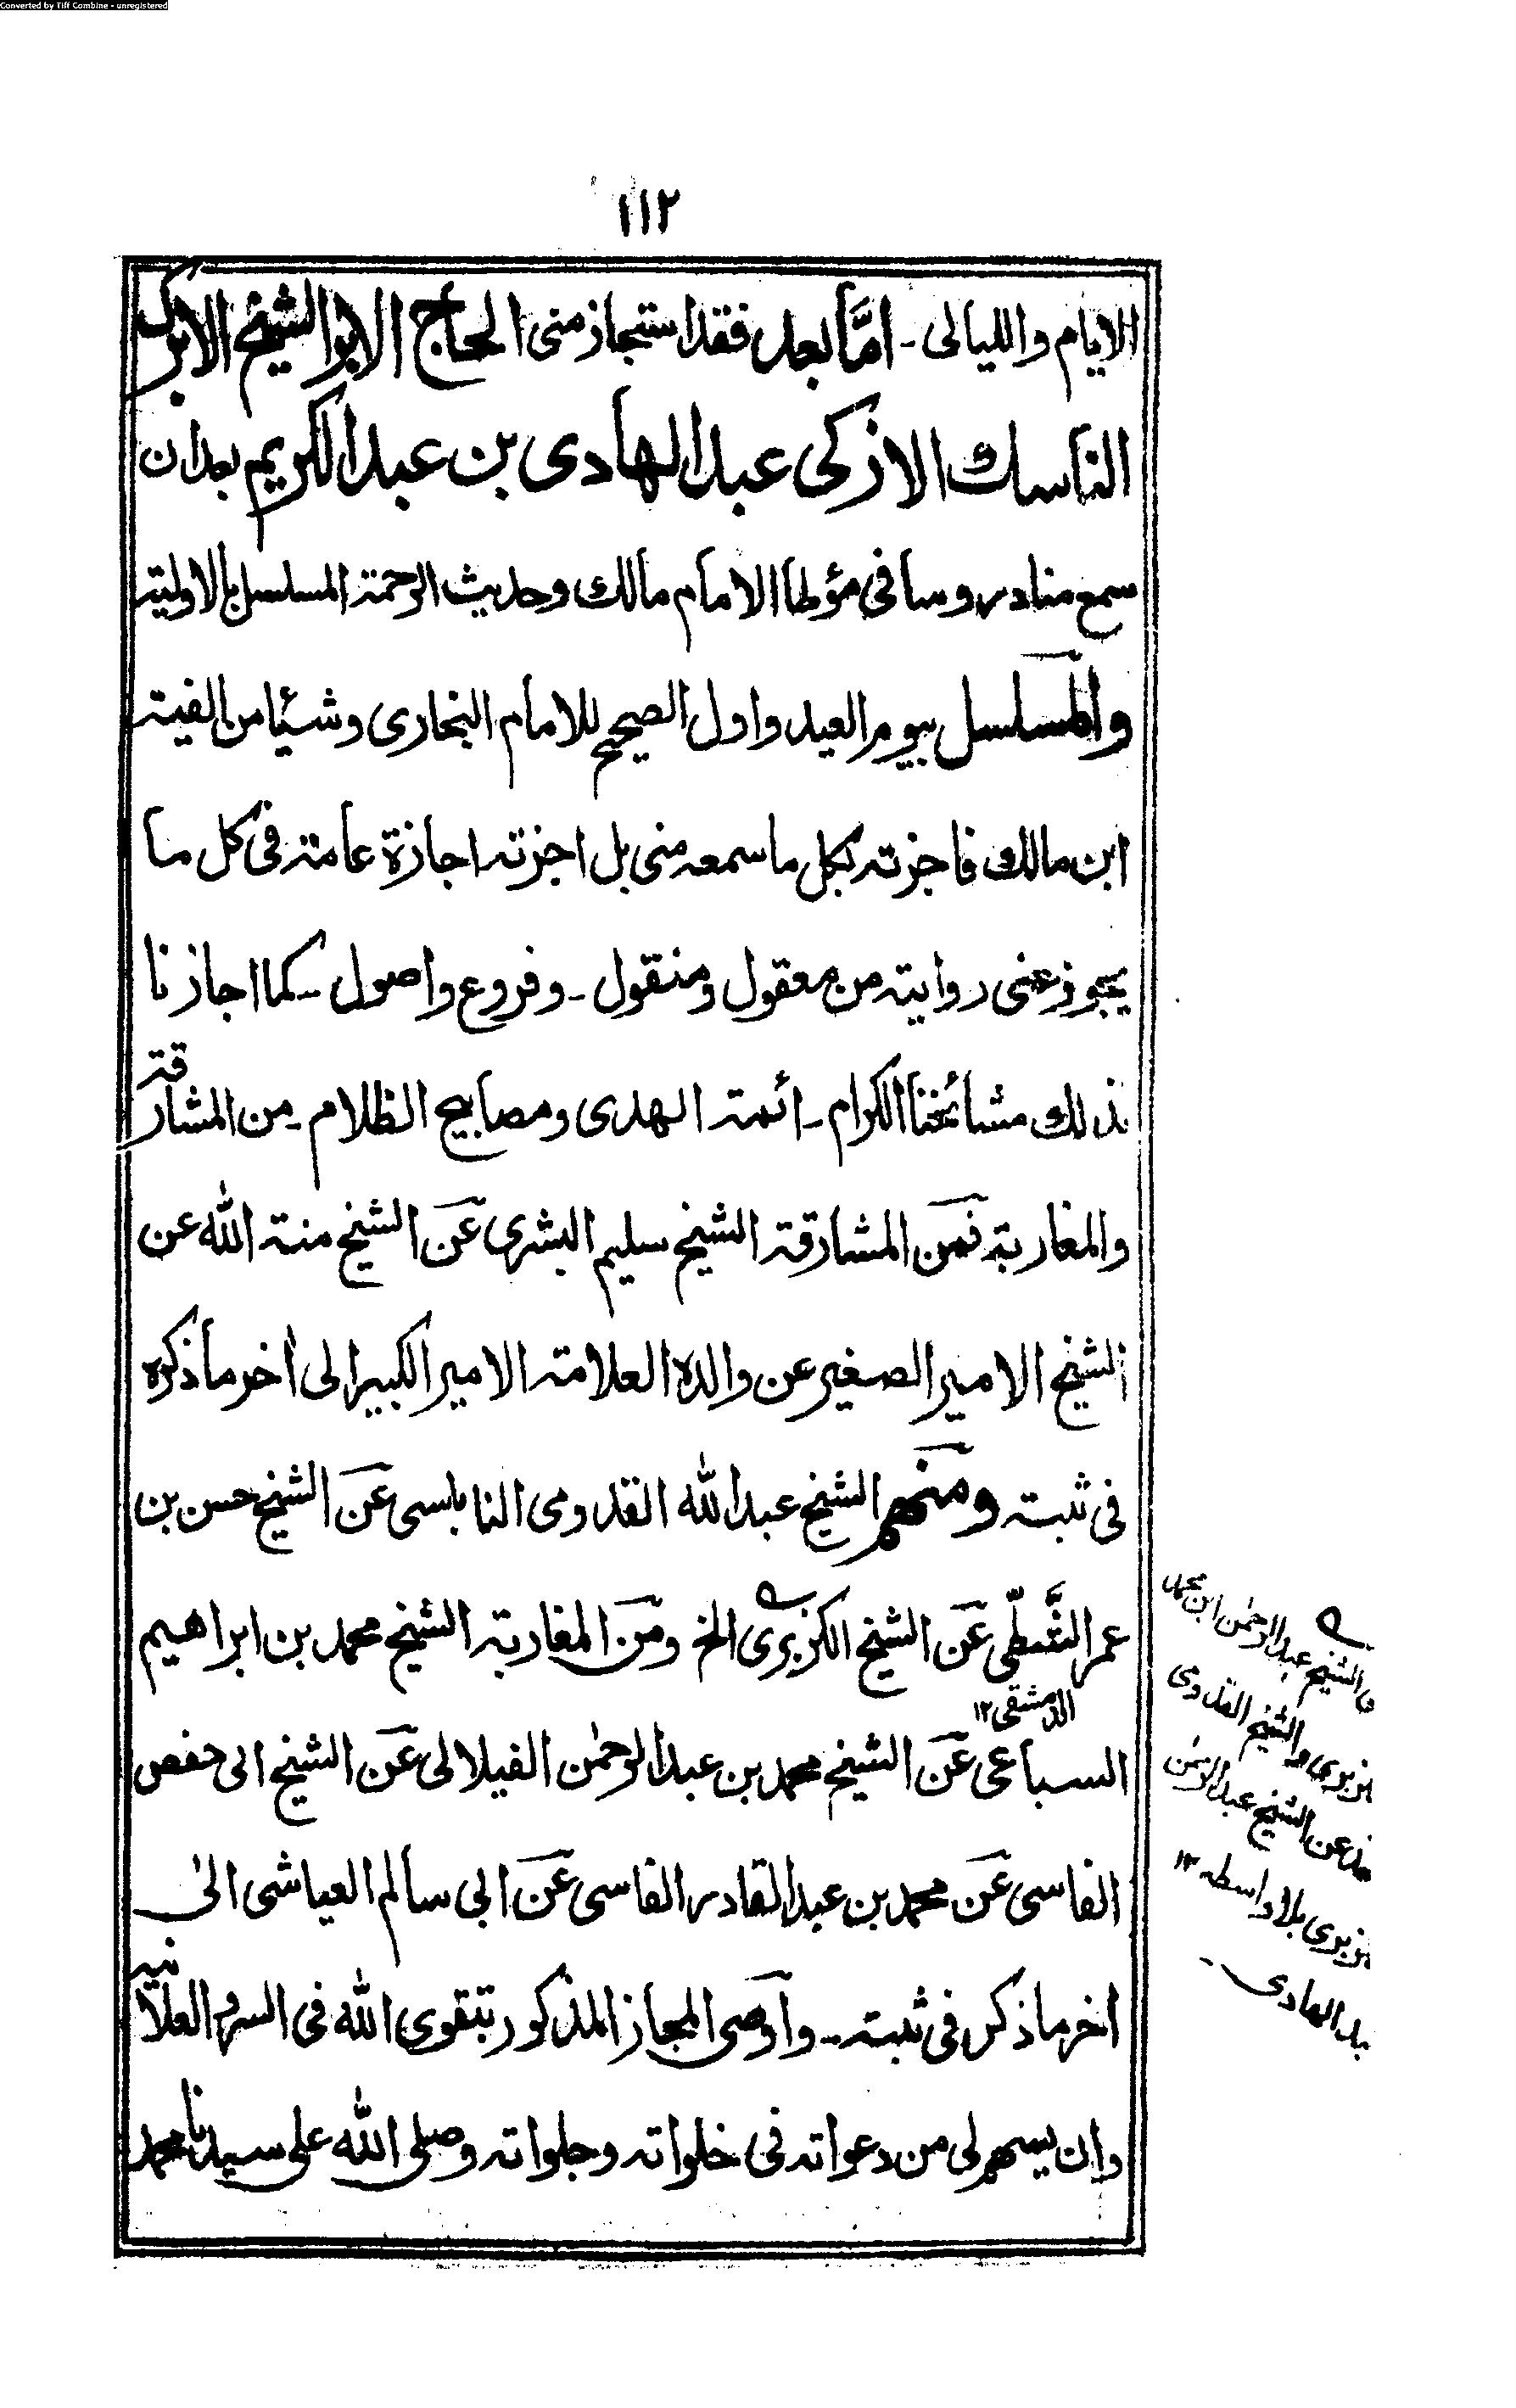 Converted by Tiff Combine - unregistered
١١٢
الايام والليالى - امَّا بعد فقد استجاز منى الحاج الابر الشيخ الابرك
الناسك الازكى عبد الهادى بن عبد الكريم بعد ان
سمع منا دروسا فى مؤطا الامام مالك وحديث الرحمة المسلسل بالاولية
والمسلسل بيوم العيد واول الصحيح للامام البخارى وشيئا من الفية
ابن مالك فاجزته بكل ما سمعه منى بل اجزته اجازة عامة فى كل ما
يجوز عنى روايته من معقول ومنقول - وفروع واصول - كما اجازنا
بذلك مشائخنا الكرام - ائمة الهدى ومصابيح الظلام - من المشارقة
والمغاربة فمن المشارقة الشيخ سليم البشرى عن الشيخ منة الله عن
الشيخ الامير الصغير عن والده العلامة الامير الكبير الى اخر ما ذكره
فى ثبته ومنهم الشيخ عبد الله القدومى النابلسى عن الشيخ حسن بن
عمر الشَّطّى عن الشيخ الكزبرى الخ ومن المغاربة الشيخ محمد بن ابراهيم
الدمشقى ١٢
السباعى عن الشيخ محمد بن عبد الرحمٰن الفيلالى عن الشيخ ابى حفص
الفاسى عن محمد بن عبد القادر الفاسى عن ابى سالم العياشى الىٰ
اخر ما ذكر فى ثبته - وأوصى المجاز المذكور بتقوى الله فى السر والعلانية
وان يسهم لى من دعواته فى خلواته وجلواته وصلى الله على سيدنا محمد
الشيخ عبد الرحمٰن ابن محمد
والشيخ القدومى
عن الشيخ عبد الرحمٰن
بلا واسطه ١٢
الهادى